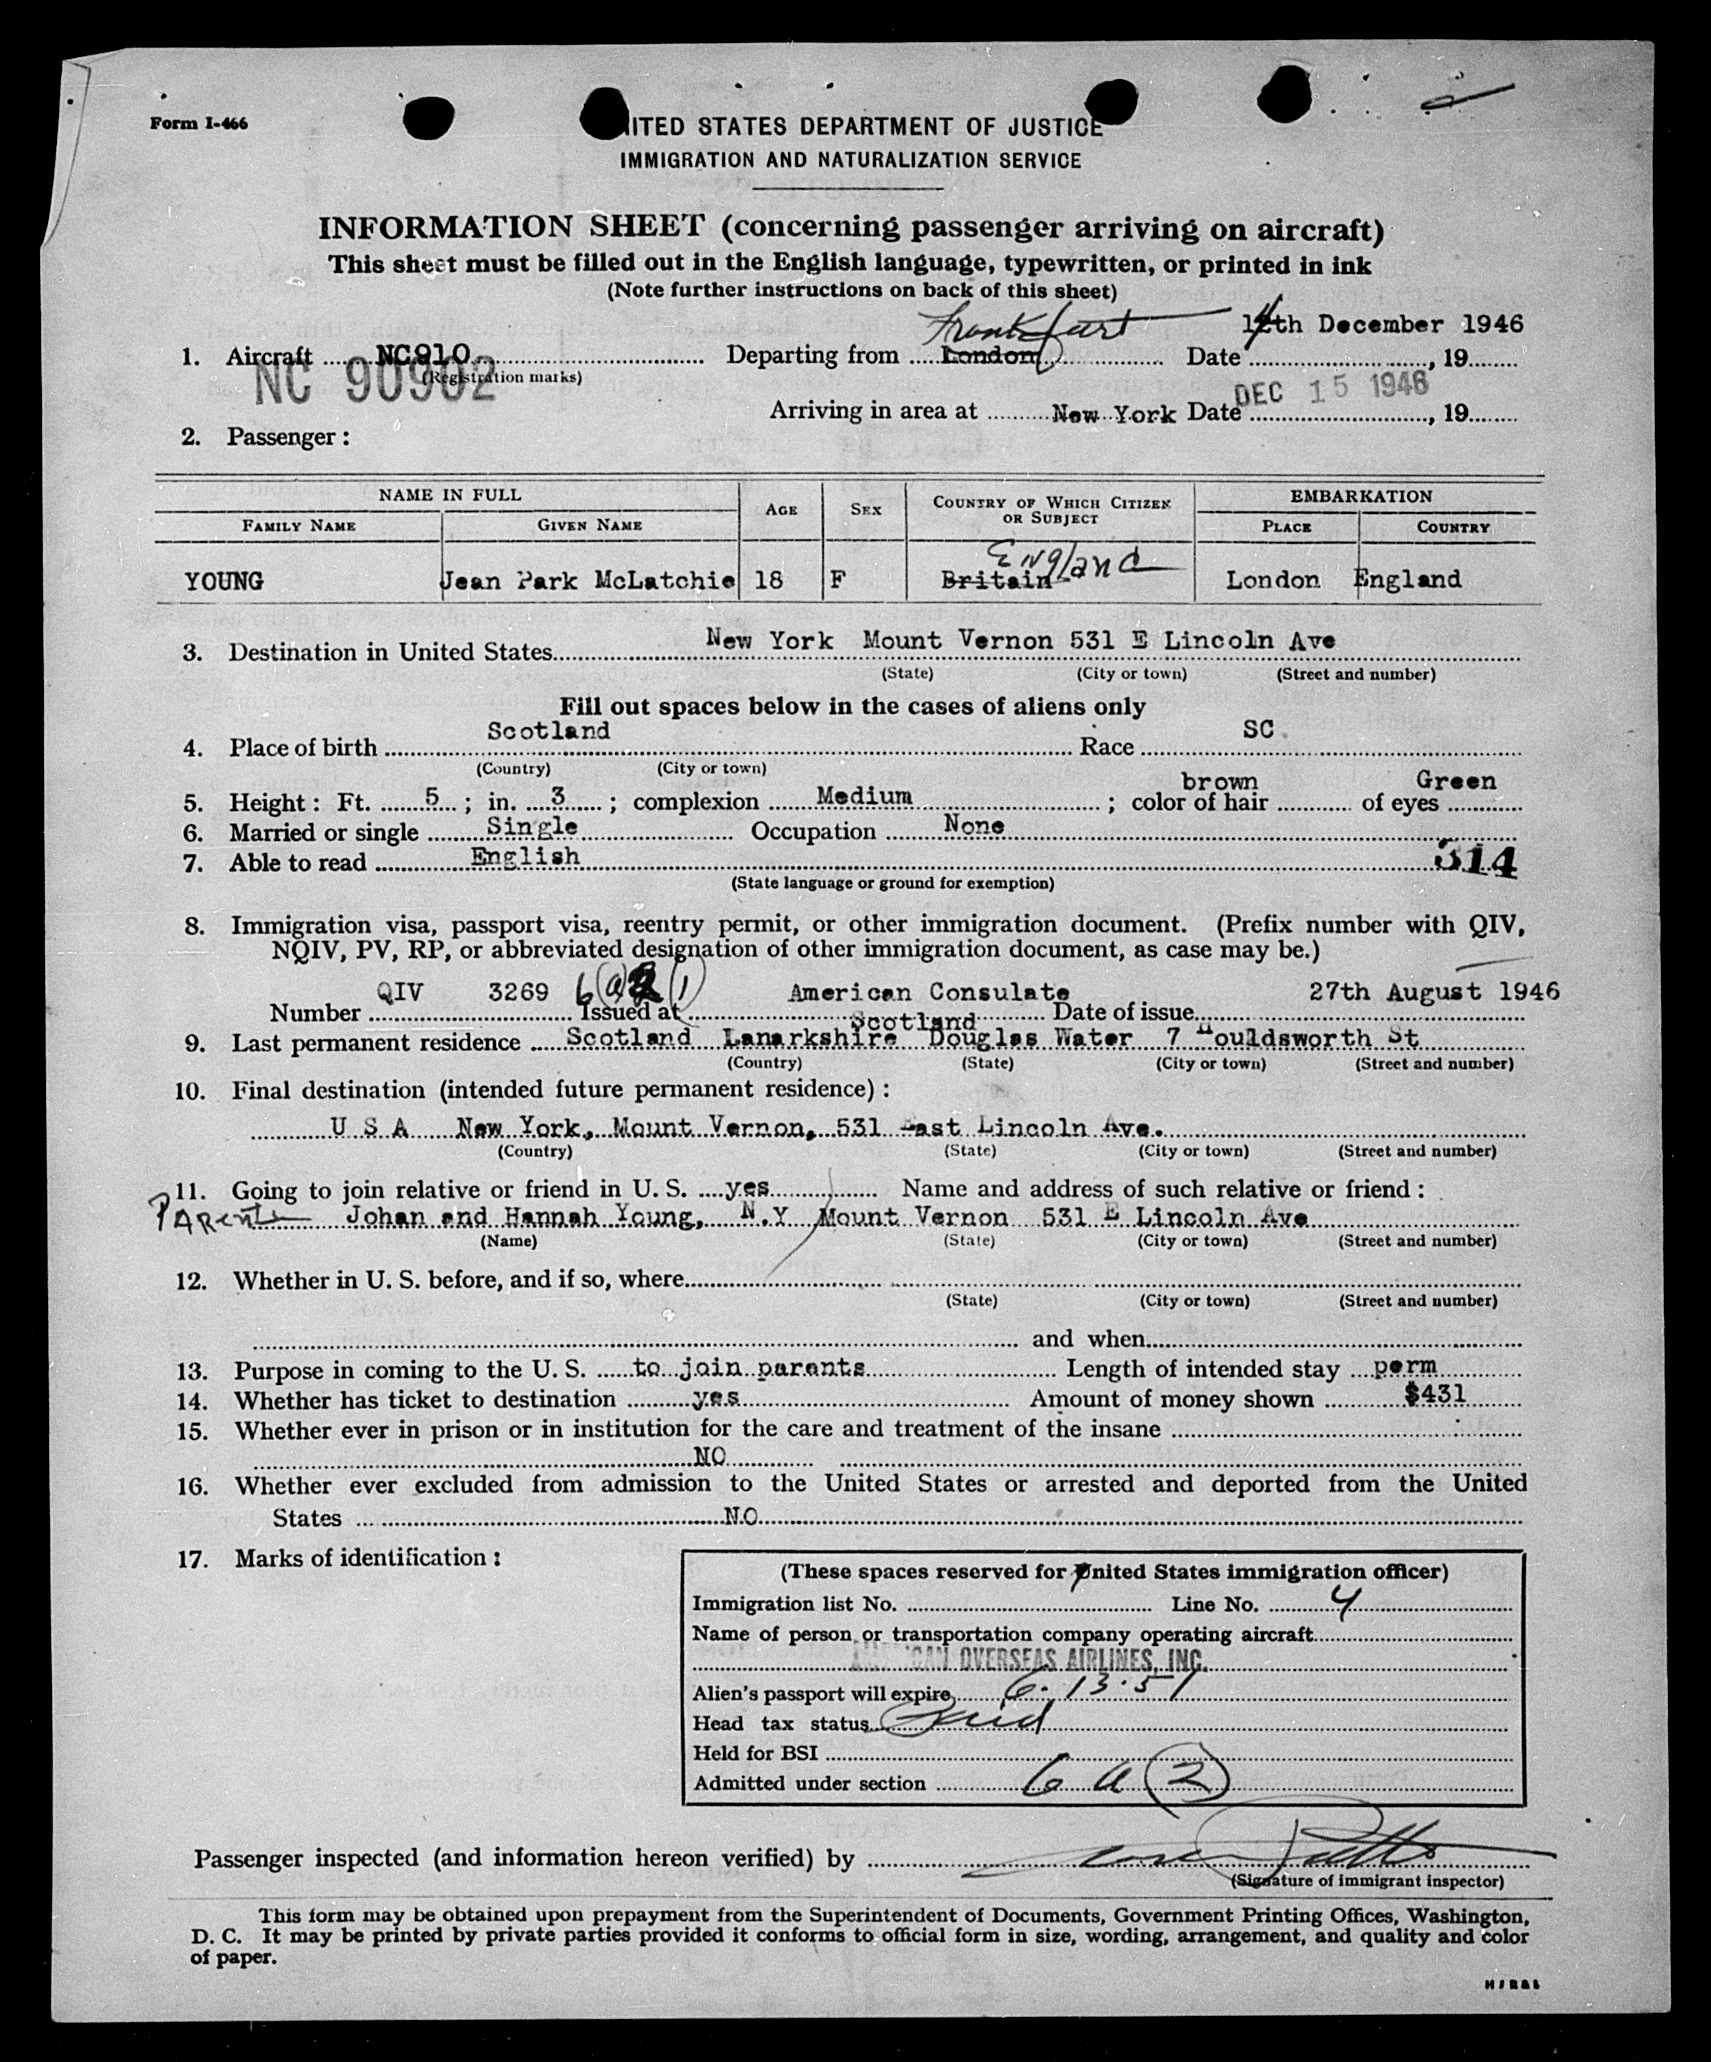 Form I-466
UNITED STATES DEPARTMENT OF JUSTICE
IMMIGRATION AND NATURALIZATION SERVICE
INFORMATION SHEET (concerning passenger arriving on aircraft)
This sheet must be filled out in the English language, typewritten, or printed in ink
(Note further instructions on back of this sheet)
Frankfurt 14th December 1946
1. Aircraft NC910 Departing from London Date , 19
NC 90902 (Registration marks)
DEC 15 1946
Arriving in area at New York Date , 19
2. Passenger:
NAME IN FULL AGE SEX COUNTRY OF WHICH CITIZEN OR SUBJECT EMBARKATION
FAMILY NAME GIVEN NAME PLACE COUNTRY
England
YOUNG Jean Park McLatchie 18 F Britain London England
3. Destination in United States New York Mount Vernon 531 E Lincoln Ave
(State) (City or town) (Street and number)
Fill out spaces below in the cases of aliens only
4. Place of birth Scotland Race SC
(Country) (City or town)
5. Height: Ft. 5 ; in. 3 ; complexion Medium ; color of hair brown of eyes Green
6. Married or single Single Occupation None
7. Able to read English 314
(State language or ground for exemption)
8. Immigration visa, passport visa, reentry permit, or other immigration document. (Prefix number with QIV,
NQIV, PV, RP, or abbreviated designation of other immigration document, as case may be.)
Number QIV 3269 6(a) (1) Issued at American Consulate Date of issue 27th August 1946
Scotland
9. Last permanent residence Scotland Lanarkshire Douglas Water 7 Houldsworth St
(Country) (State) (City or town) (Street and number)
10. Final destination (intended future permanent residence):
U S A New York, Mount Vernon, 531 East Lincoln Ave.
(Country) (State) (City or town) (Street and number)
11. Going to join relative or friend in U. S. yes Name and address of such relative or friend:
PARents Johan and Hannah Young, N.Y Mount Vernon 531 E Lincoln Ave
(Name) (State) (City or town) (Street and number)
12. Whether in U. S. before, and if so, where
(State) (City or town) (Street and number)
and when
13. Purpose in coming to the U. S. to join parents Length of intended stay perm
14. Whether has ticket to destination yes Amount of money shown $431
15. Whether ever in prison or in institution for the care and treatment of the insane
NO
16. Whether ever excluded from admission to the United States or arrested and deported from the United
States NO
17. Marks of identification:
(These spaces reserved for United States immigration officer)
Immigration list No. Line No. 4
Name of person or transportation company operating aircraft
AMERICAN OVERSEAS AIRLINES, INC.
Alien's passport will expire 6.13.51
Head tax status Paid
Held for BSI
Admitted under section 6 a (2)
Passenger inspected (and information hereon verified) by
(Signature of immigrant inspector)
This form may be obtained upon prepayment from the Superintendent of Documents, Government Printing Offices, Washington,
D. C. It may be printed by private parties provided it conforms to official form in size, wording, arrangement, and quality and color
of paper.